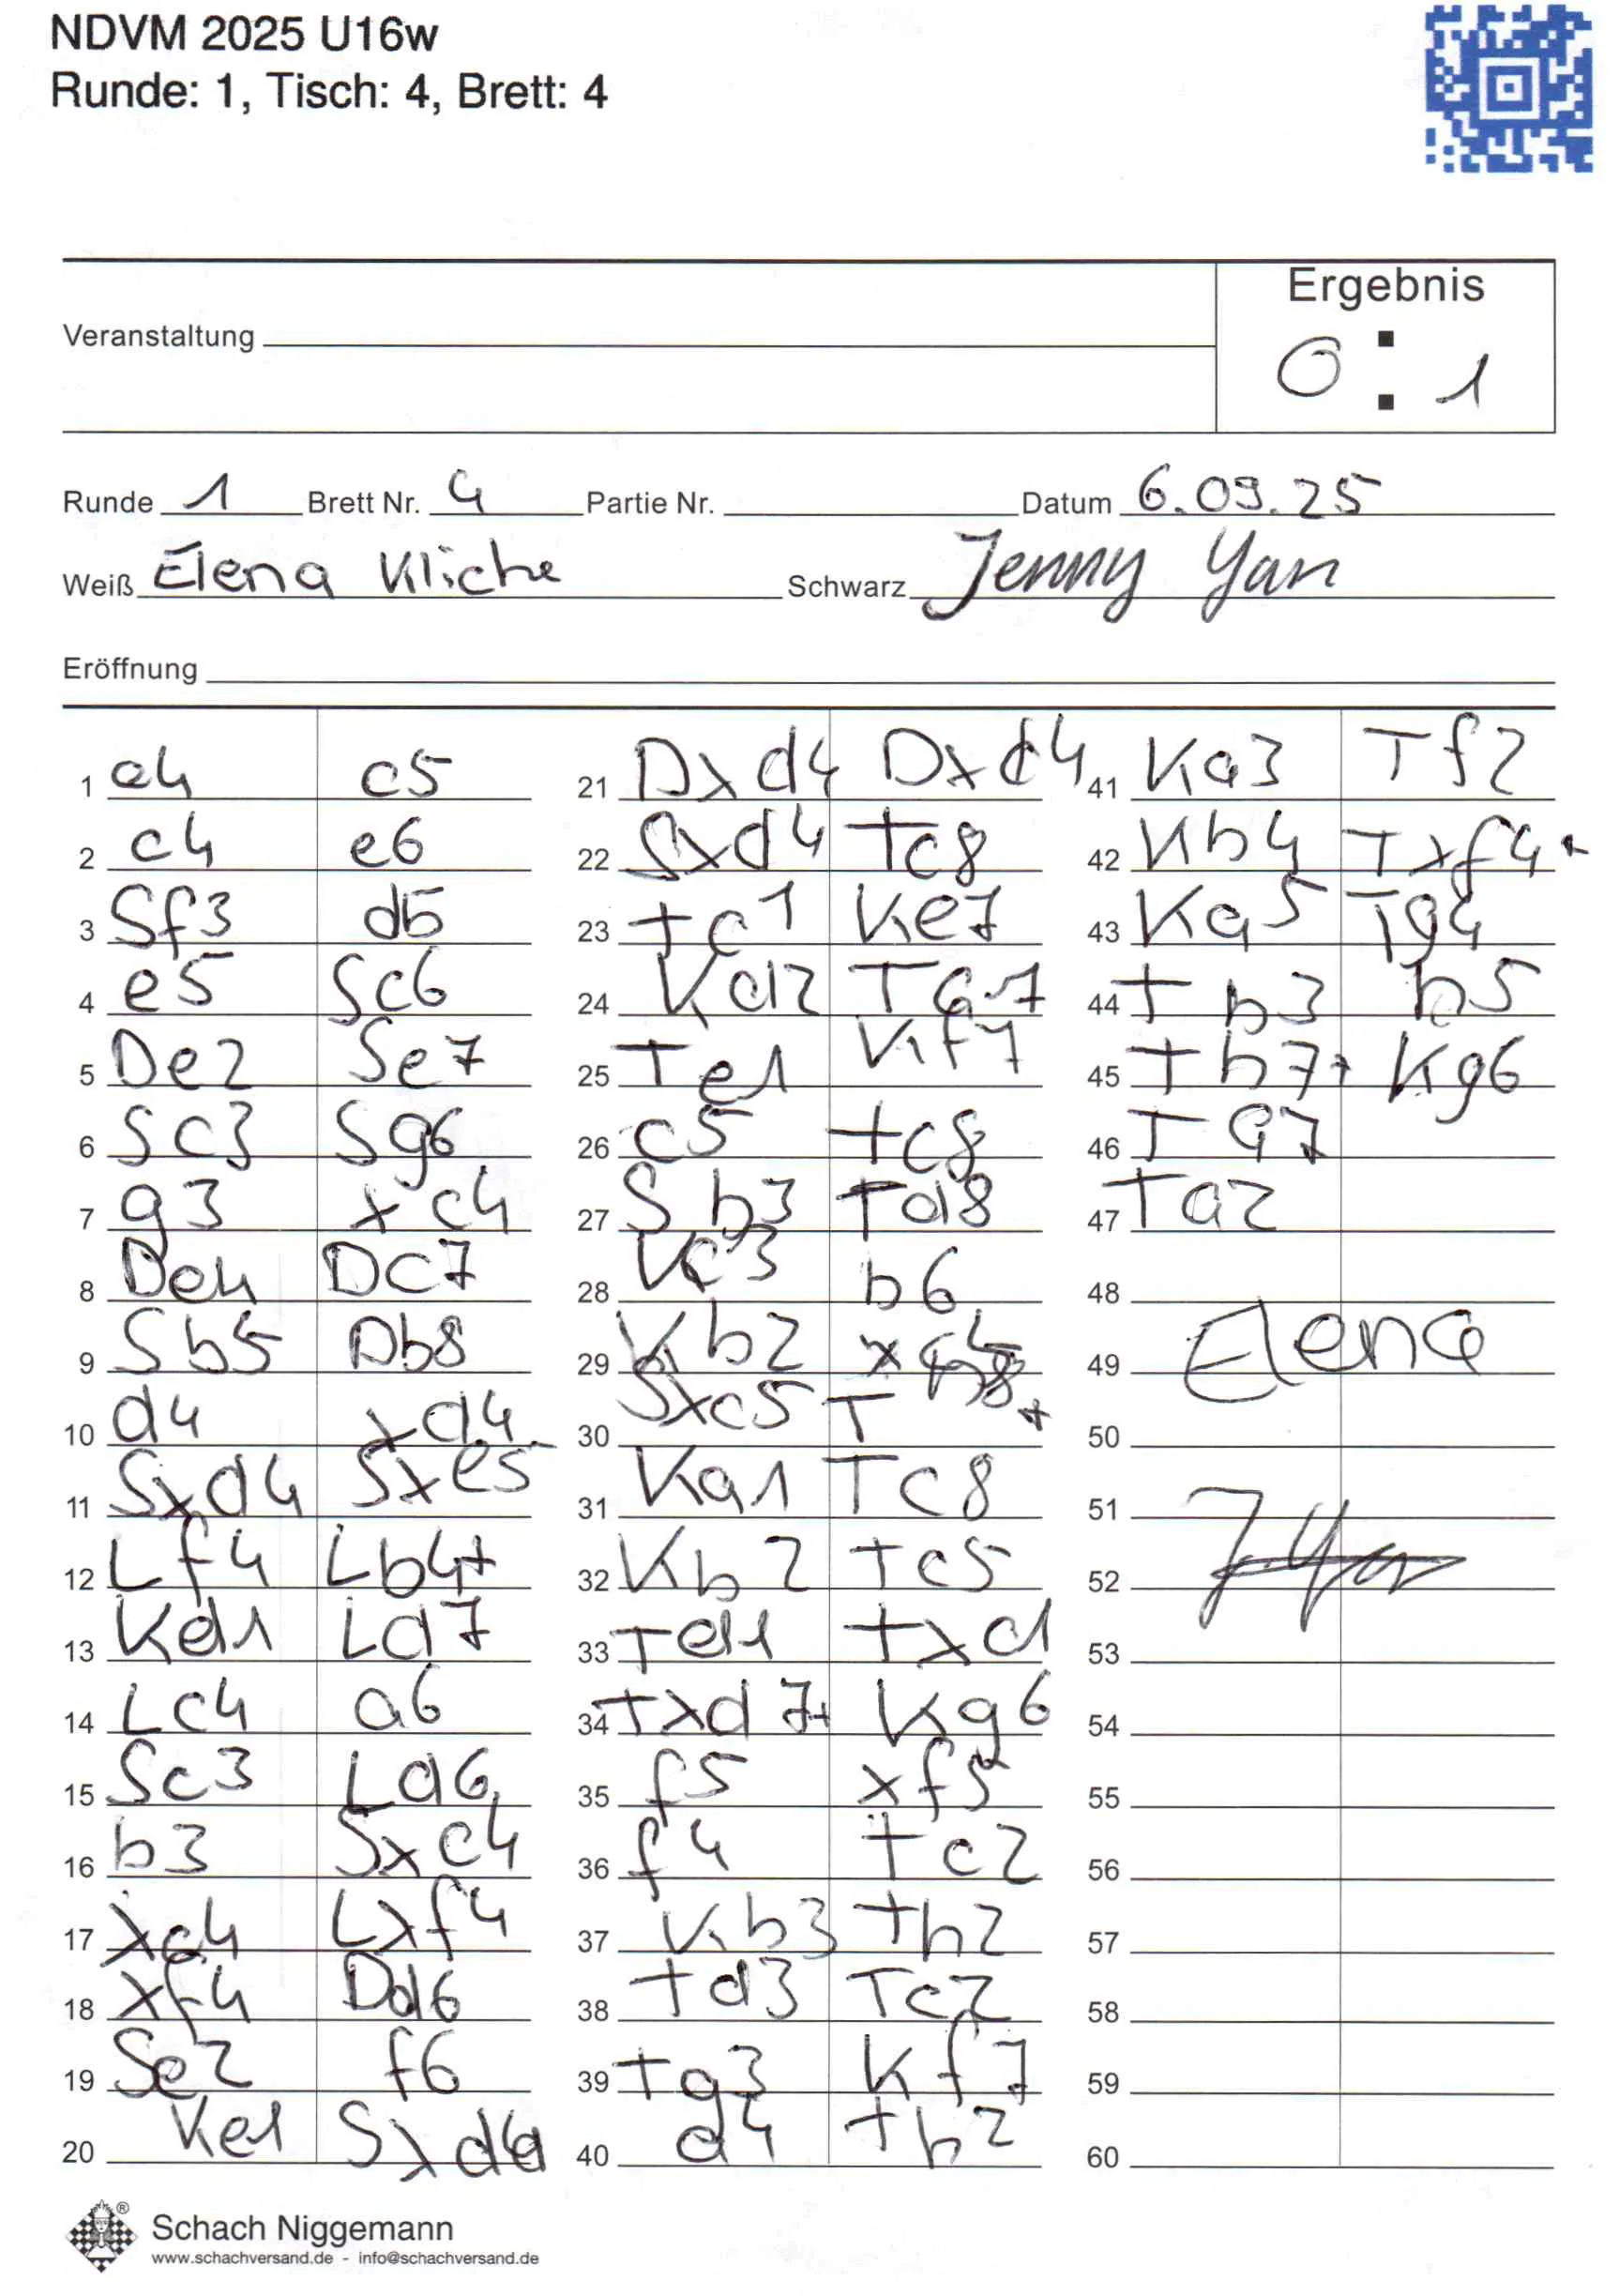 NDVM 2025 U16w
Runde: 1, Tisch: 4, Brett: 4
Ergebnis
Veranstaltung
0 : 1
Runde 1 Brett Nr. 4 Partie Nr. Datum 6.09.25
Weiß Elena Kliche Schwarz Jenny Yan
Eröffnung
1 e4 c5
2 c4 e6
3 Sf3 d5
4 e5 Sc6
5 De2 Se7
6 Sc3 Sg6
7 g3 xc4
8 De4 Dc7
9 Sb5 Db8
10 d4 xd4
11 Sxd4 Sxe5
12 Lf4 Lb4+
13 Kd1 Ld7
14 Lc4 a6
15 Sc3 Ld6
16 b3 Sxc4
17 xc4 Lxf4
18 xf4 Dd6
19 Se2 f6
20 Ke1 Sxd4
21 Dxd4 Dxd4
22 Sxd4 Tc8
23 Tc1 Ke7
24 Kd2 Tc7
25 Te1 Kf7
26 c5 Tc8
27 Sb3 Td8
28 Kc3 b6
29 Kb2 x
30 Sxc5 T +
31 Ka1 Tc8
32 Kb2 Tc5
33 Td1 Txc1
34 Txd7+ Kg6
35 f5 xf5
36 f4 Tc2
37 Kb3 Th2
38 Td3 Tc2
39 Tg3 Kf7
40 a4 Th2
41 Ka3 Tf2
42 Kb4 Txf4+
43 Ka5 Tg4
44 Tb3 h5
45 Tb7+ Kg6
46 Ta7
47 Ta2
48
49 Elena
50
51
52
53
54
55
56
57
58
59
60
Schach Niggemann
www.schachversand.de - info@schachversand.de